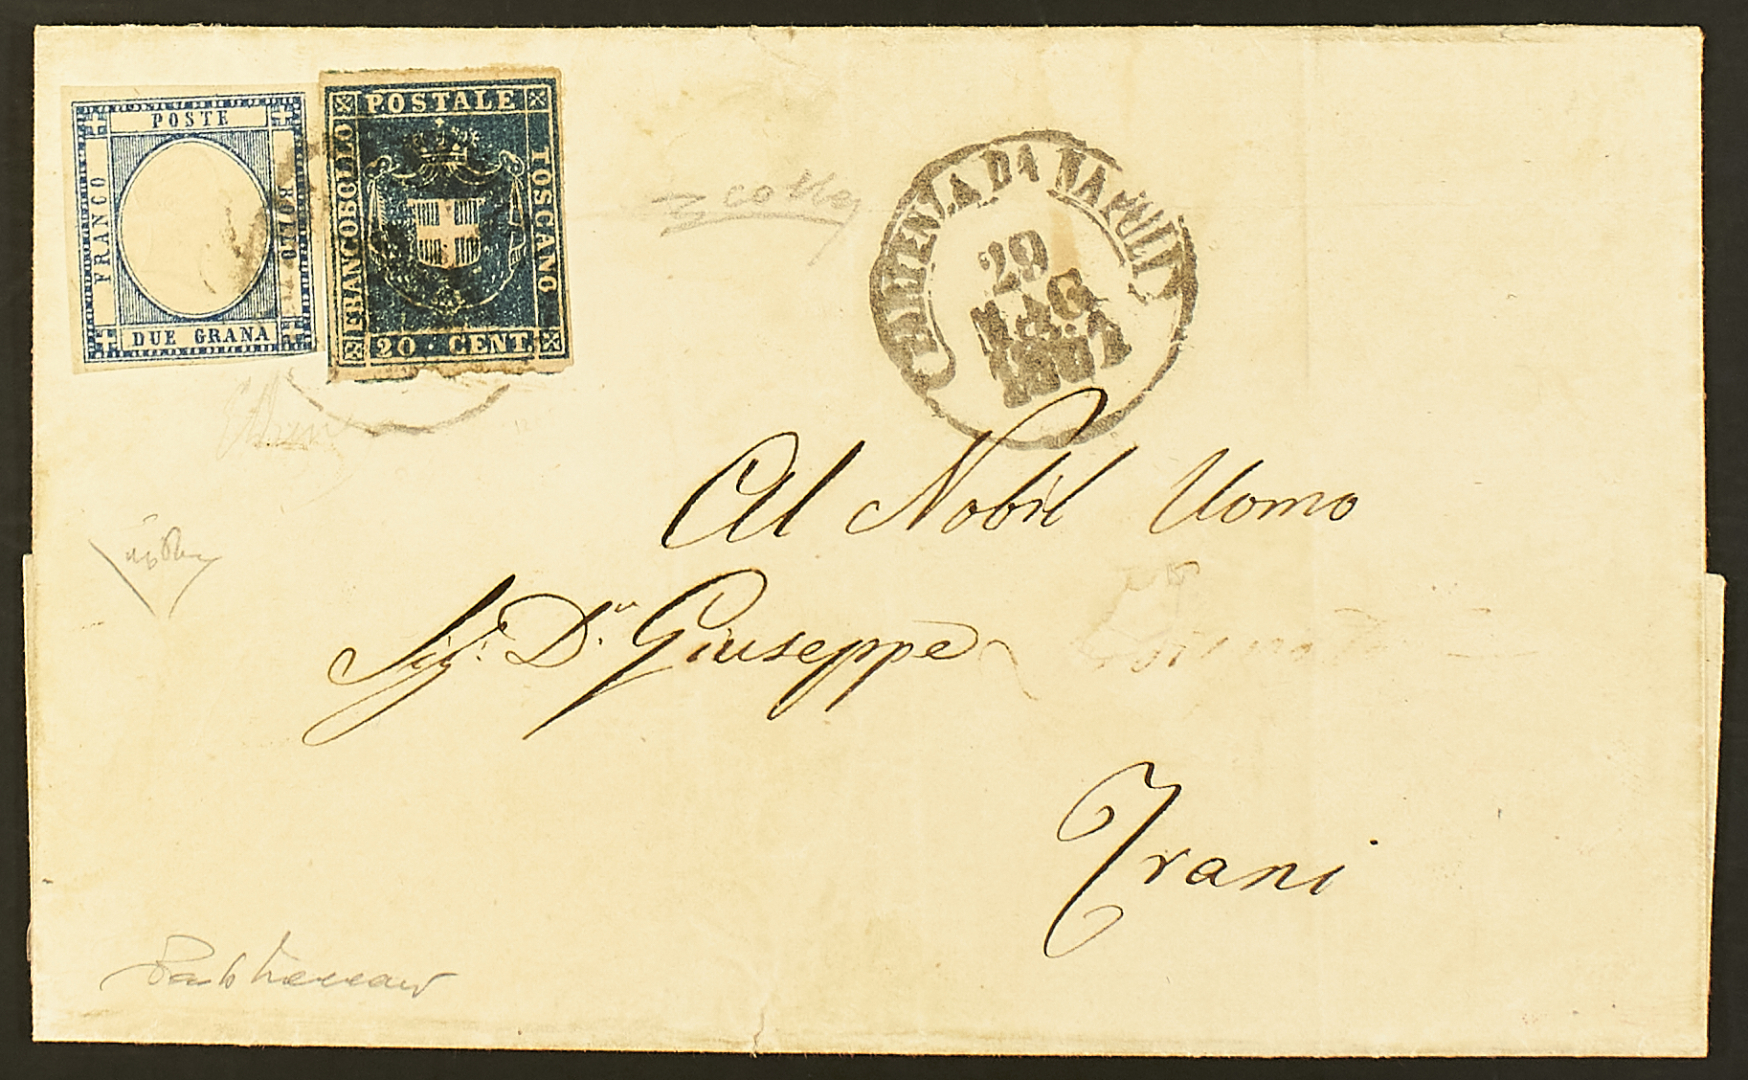 POSTE
FRANCO
BOLLO
DUE GRANA
POSTALE
FRANCOBOLLO
TOSCANO
20 · CENT.
PARTENZA DA NAPOLI
29
MAG
1861
Al Nobil Uomo
Sig: D.n Giuseppe
Trani